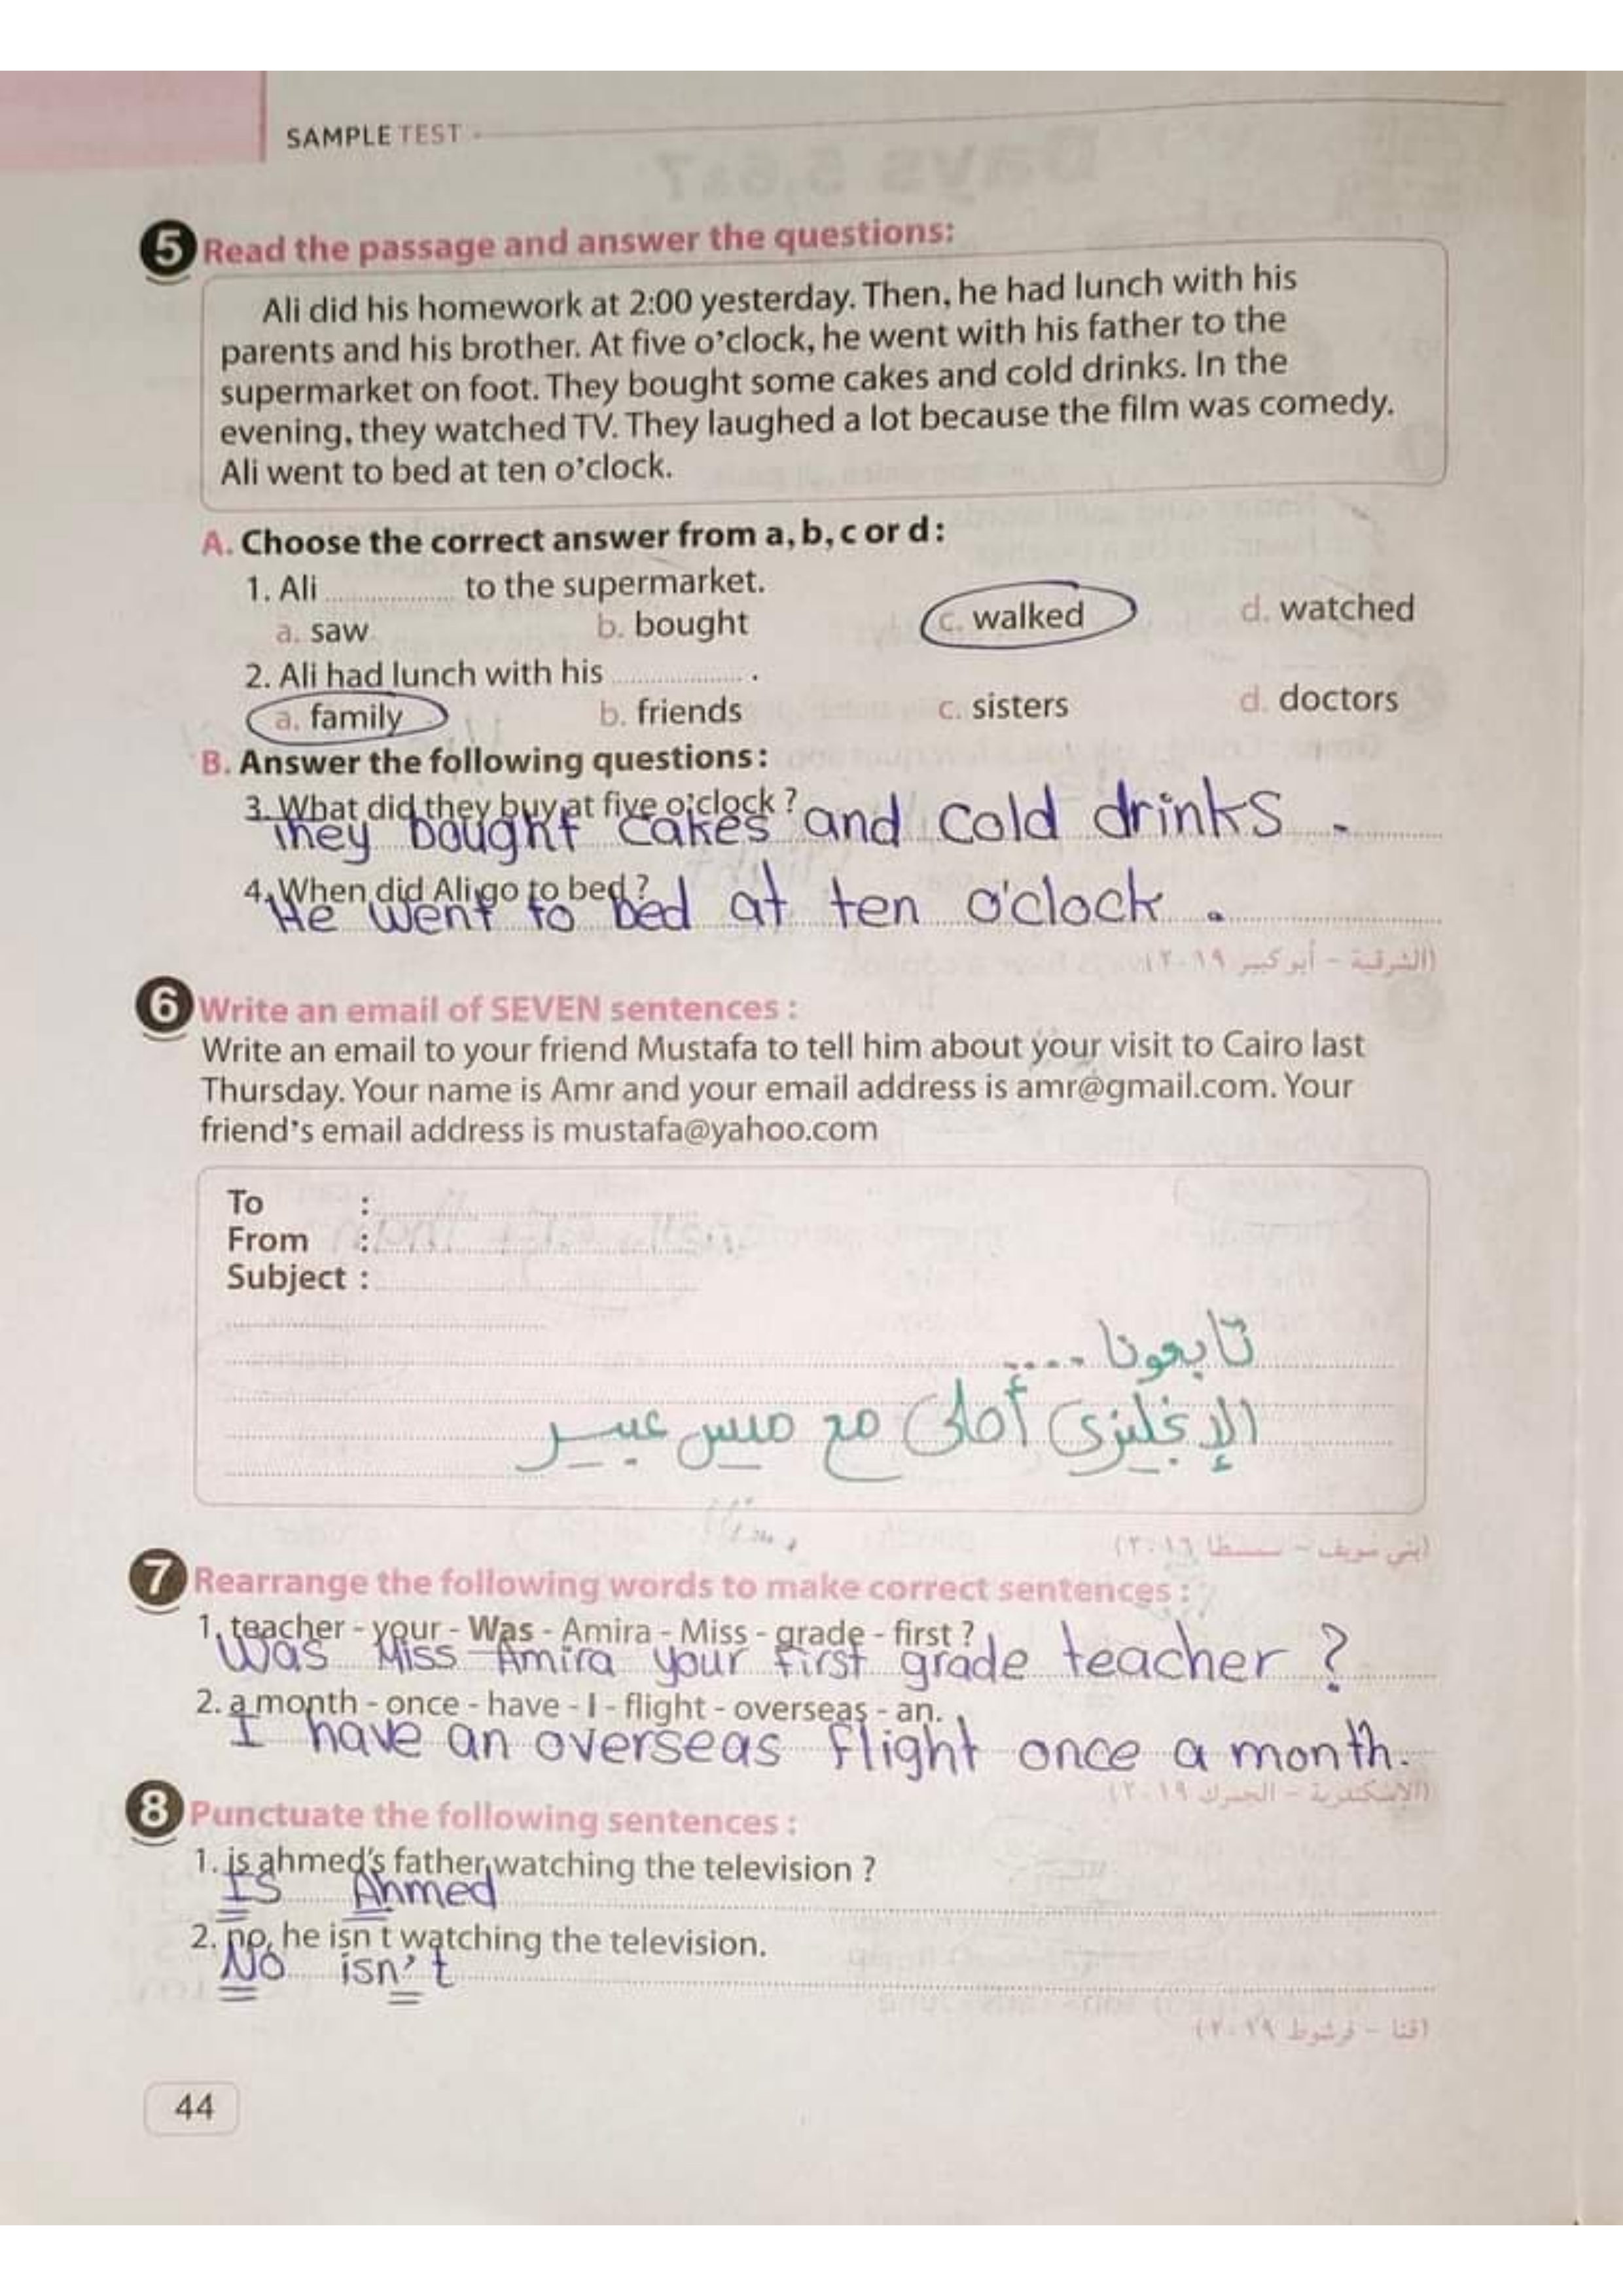 SAMPLE TEST
5 Read the passage and answer the questions:
Ali did his homework at 2:00 yesterday. Then, he had lunch with his
parents and his brother. At five o'clock, he went with his father to the
supermarket on foot. They bought some cakes and cold drinks. In the
evening, they watched TV. They laughed a lot because the film was comedy.
Ali went to bed at ten o'clock.
A. Choose the correct answer from a, b, c or d:
1. Ali ................ to the supermarket.
a. saw b. bought c. walked d. watched
2. Ali had lunch with his ................ .
a. family b. friends c. sisters d. doctors
B. Answer the following questions:
3. What did they buy at five o'clock ?
They bought cakes and cold drinks .
4. When did Ali go to bed ?
He went to bed at ten o'clock .
(الشرقية - أبو كبير ٢٠١٩)
6 Write an email of SEVEN sentences :
Write an email to your friend Mustafa to tell him about your visit to Cairo last
Thursday. Your name is Amr and your email address is amr@gmail.com. Your
friend's email address is mustafa@yahoo.com
To :
From :
Subject :
تابعونا ....
الإنجليزى أحلى مع ميس عبير
(بنى سويف - سمسطا ٢٠١٦)
7 Rearrange the following words to make correct sentences :
1. teacher - your - Was - Amira - Miss - grade - first ?
Was Miss Amira your first grade teacher ?
2. a month - once - have - I - flight - overseas - an.
I have an overseas flight once a month.
(الإسكندرية - الجمرك ٢٠١٩)
8 Punctuate the following sentences :
1. is ahmed's father watching the television ?
Is Ahmed
2. no, he isn t watching the television.
No isn't
(قنا - فرشوط ٢٠١٩)
44